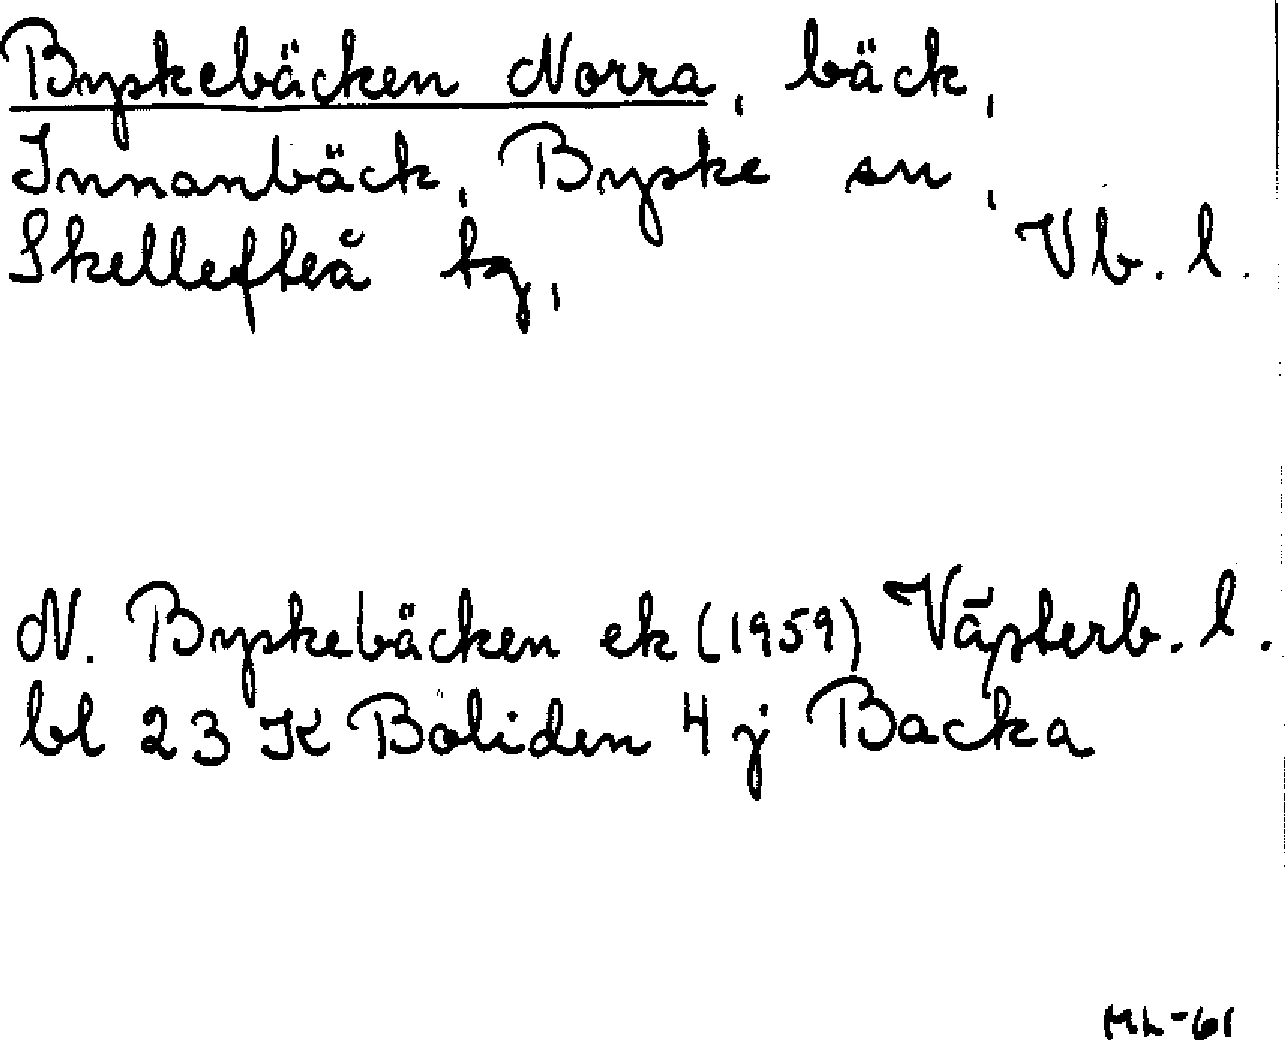 Byskebäcken Norra, bäck,
Innanbäck, Byske sn,
Skellefteå tg, Vb. l.
N. Byskebäcken ek (1959) Västerb. l.
bl 23 K Boliden 4 j Backa
ML-61